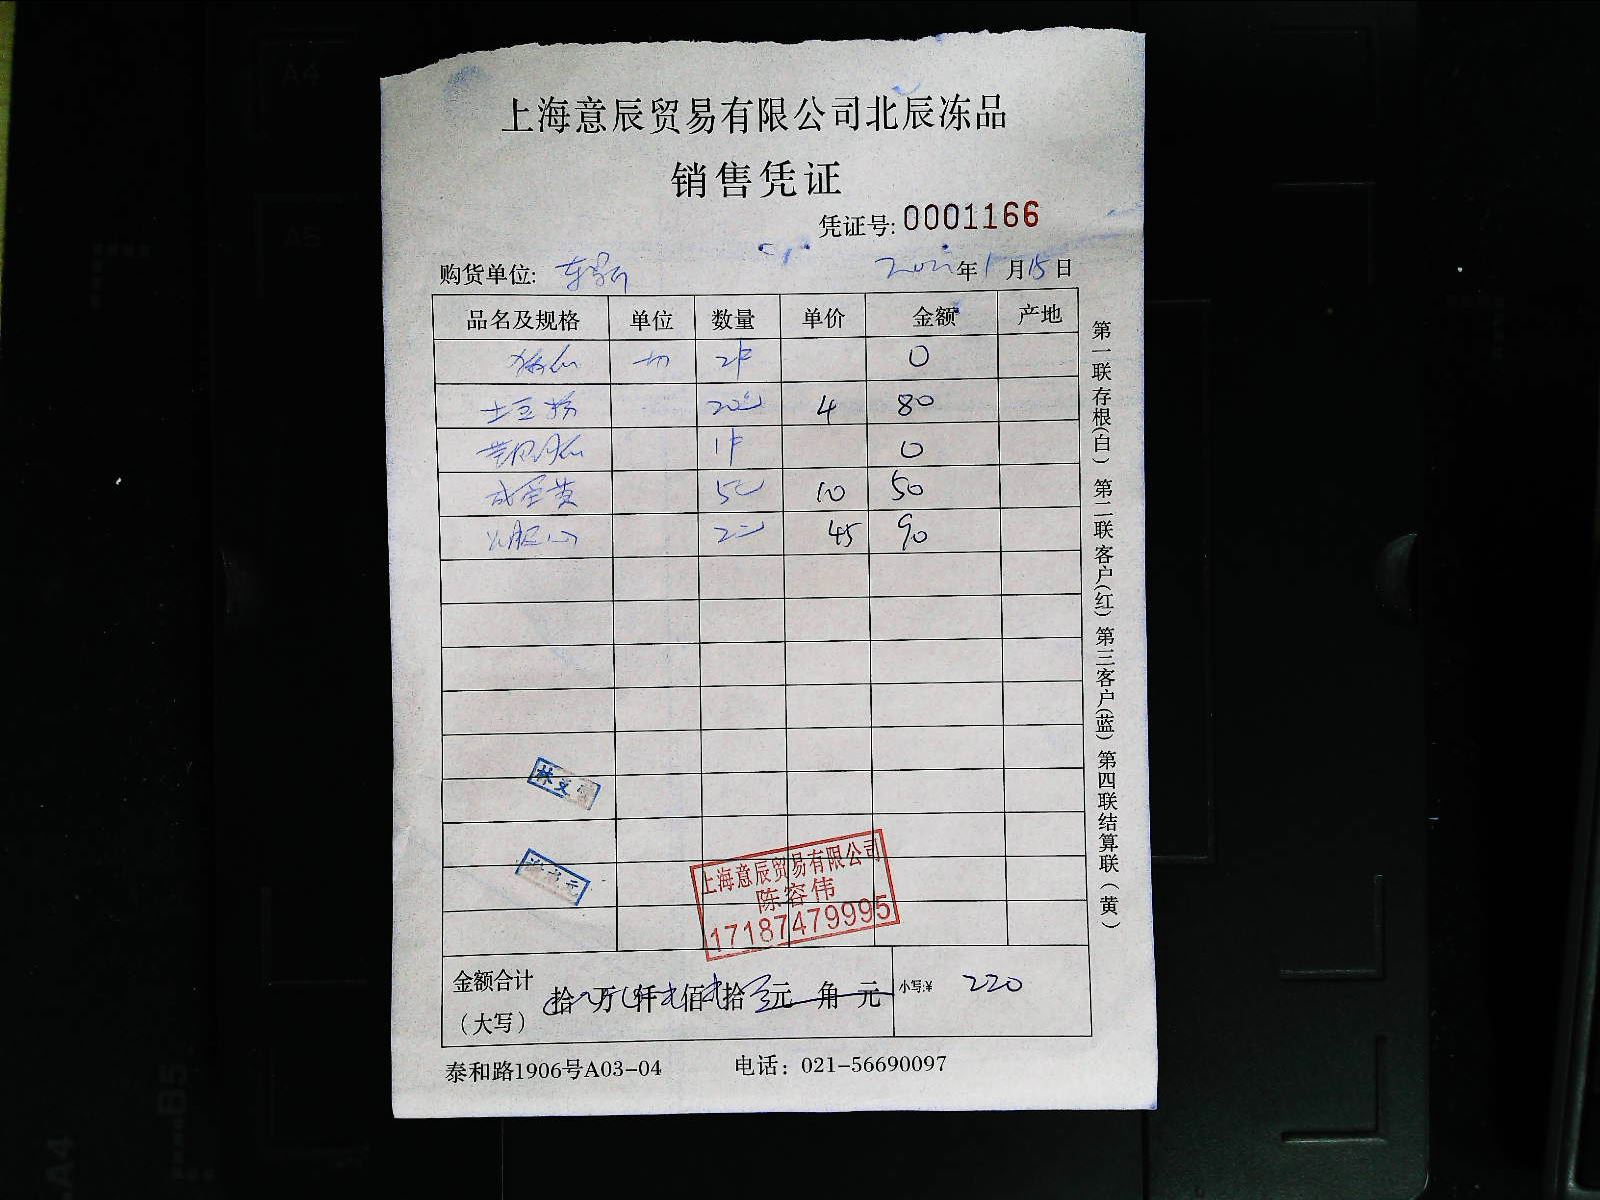 上海意辰贸易有限公司北辰冻品
销售凭证
凭证号: 0001166
购货单位:
年1月15日
品名及规格 单位 数量 单价 金额 产地
0
土豆粉 20 4 80
0
咸蛋黄 5 10 50
2 45 90
林文
上海意辰贸易有限公司
陈容伟
17187479995
金额合计
（大写）
拾 万 仟 佰 拾 元 角 元
小写:¥ 220
泰和路1906号A03-04 电话：021-56690097
第一联存根(白) 第二联客户(红) 第三客户(蓝) 第四联结算联(黄)
A4
A5
B5
A4